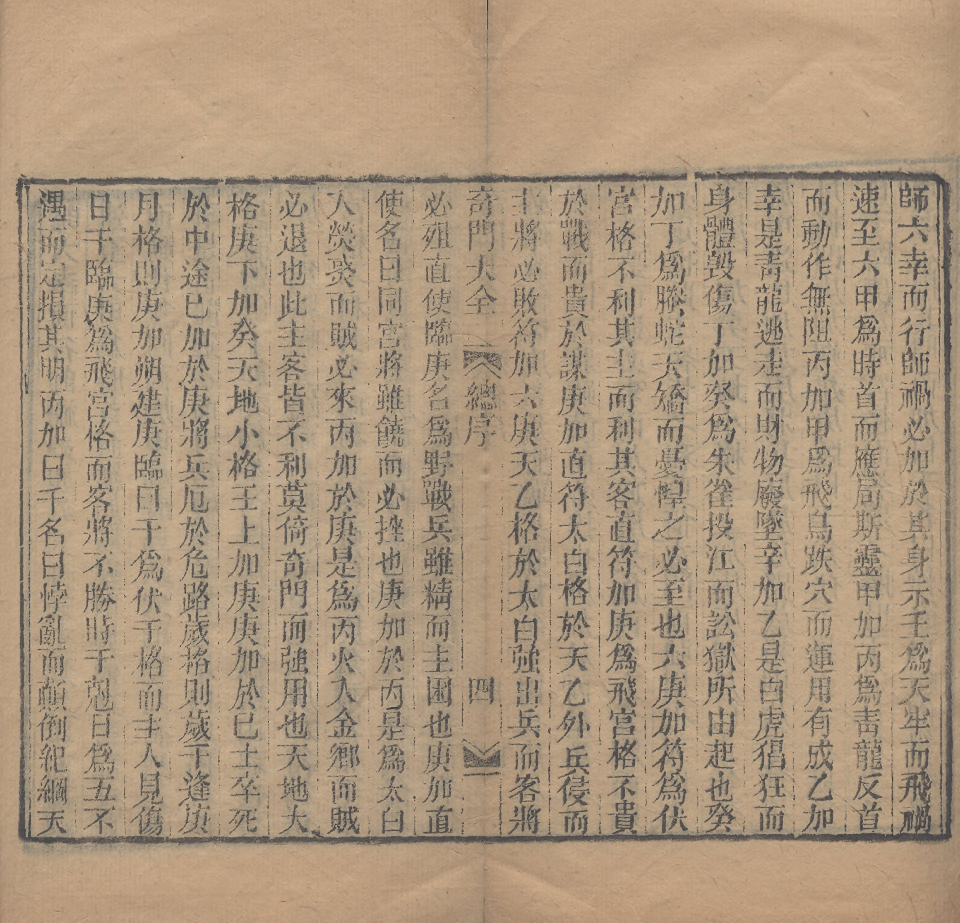 師六幸而行師禍必加於其身示壬爲天牢而飛禍
速至六甲爲時首而應局斯靈甲加丙爲青龍反首
而動作無阻丙加甲爲飛鳥跌穴而運用有成乙加
幸是青龍逃走而財物廢墜辛加乙是白虎猖狂而
身體毀傷丁加癸爲朱雀投江而訟獄所由起也癸
加丁爲螣蛇天矯而憂惶之必至也六庚加符爲伏
宮格不利其主而利其客直符加庚爲飛宮格不貴
於戰而貴於謀庚加直符太白格於天乙外兵侵而
主將必敗符加六庚天乙格於太白強出兵而客將
奇門大全 總序 四
必殂直使臨庚名爲野戰兵雖精而主困也庚加直
使名曰同宮將雖饒而必挫也庚加於丙是爲太白
入熒熒而賊必來丙加於庚是爲丙火入金鄉而賊
必退也此主客皆不利莫倚奇門而強用也天地大
格庚下加癸天地小格壬上加庚庚加於巳士卒死
於中途巳加於庚將兵厄於危路歲格則歲干逢庚
月格則庚加朔建庚臨日干爲伏干格而主人見傷
日干臨庚爲飛宮格而客將不勝時干尅日爲五不
遇而定損其明丙加日千名曰悖亂而顛倒紀綱天